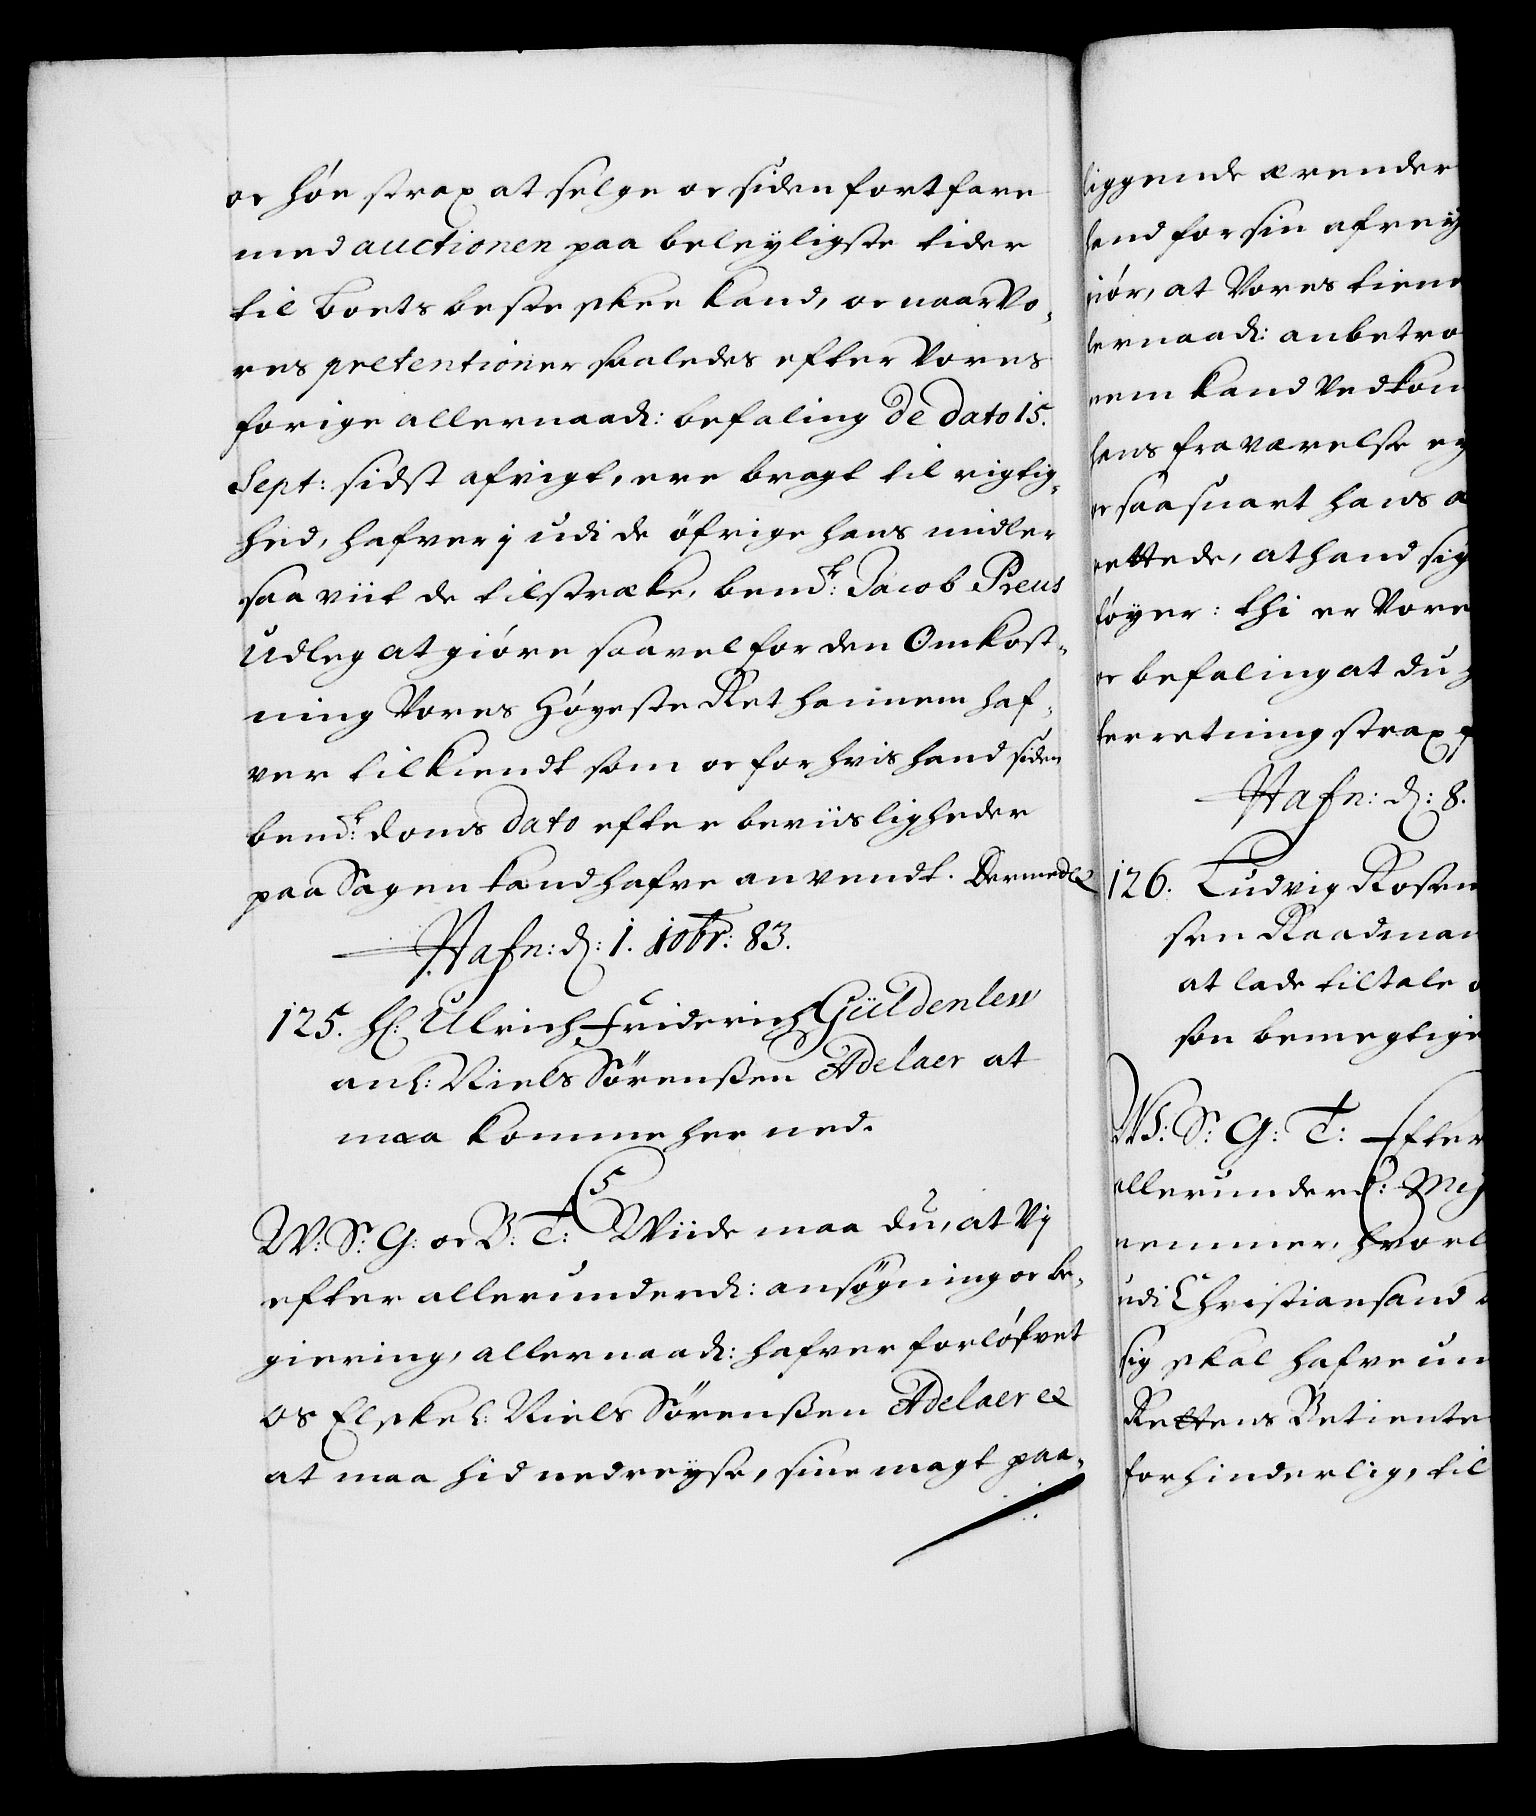 oc höe strax at selge oc siden fortfare
med auctionen paa beleyligste tider
til Boets beste skee kand, oc naar Vo,
res pretentioner saaledes efter Vores
forige allernaad: befaling de dato 15.
Sept: sidst afvigt, ere bragt til rigtig,
hed, hafver i udi de öfrige hans midler
saa viit de tilstræke, bemd.te: Jacob Preus
Udleg at giöre saavel for den Omkost,
ning Vores Höyeste Ret hannem haf,
ver tilkiendt som oc for hvis hand siden
bemd.te doms dato efter beviisligheder
paa Sagen kand hafve anvendt. Dermed &
Hafn: d: 1. 10br: 83.
125. H: Ulrich Friderich Güldenlew
anl: Niels Sörenßen Adelaer at
maa komme her ned.
C5
W: S: G: oc B: T: Wiide maa du, at Vy
efter allerunderd: ansögning oc be,
giering, allernaad: hafver forlöfvet
os Elskel: Niels Sörenßen Adelaer &
at maa hid nedreyse, sine magt paa,
liggende ærender
hand for sin afrey
giör, at Vores tiene
lernaad: anbetro
nem kand Vedkom
hans fraværelse ey
oc saasnart hans a
rettede, at hand sig
föyer: thi er Vore
oc befaling at du h
terretning strax
Hafn: d: 8.
126. Ludvig Rosen
sen Raadman
at lade tiltale
son bemegtige
W: S: G: T: Efter
allerunderd: My
nemmer, hvorl
udi Christiansand
sig skal hafve un
Rettens Betiente
forhinderlig, til